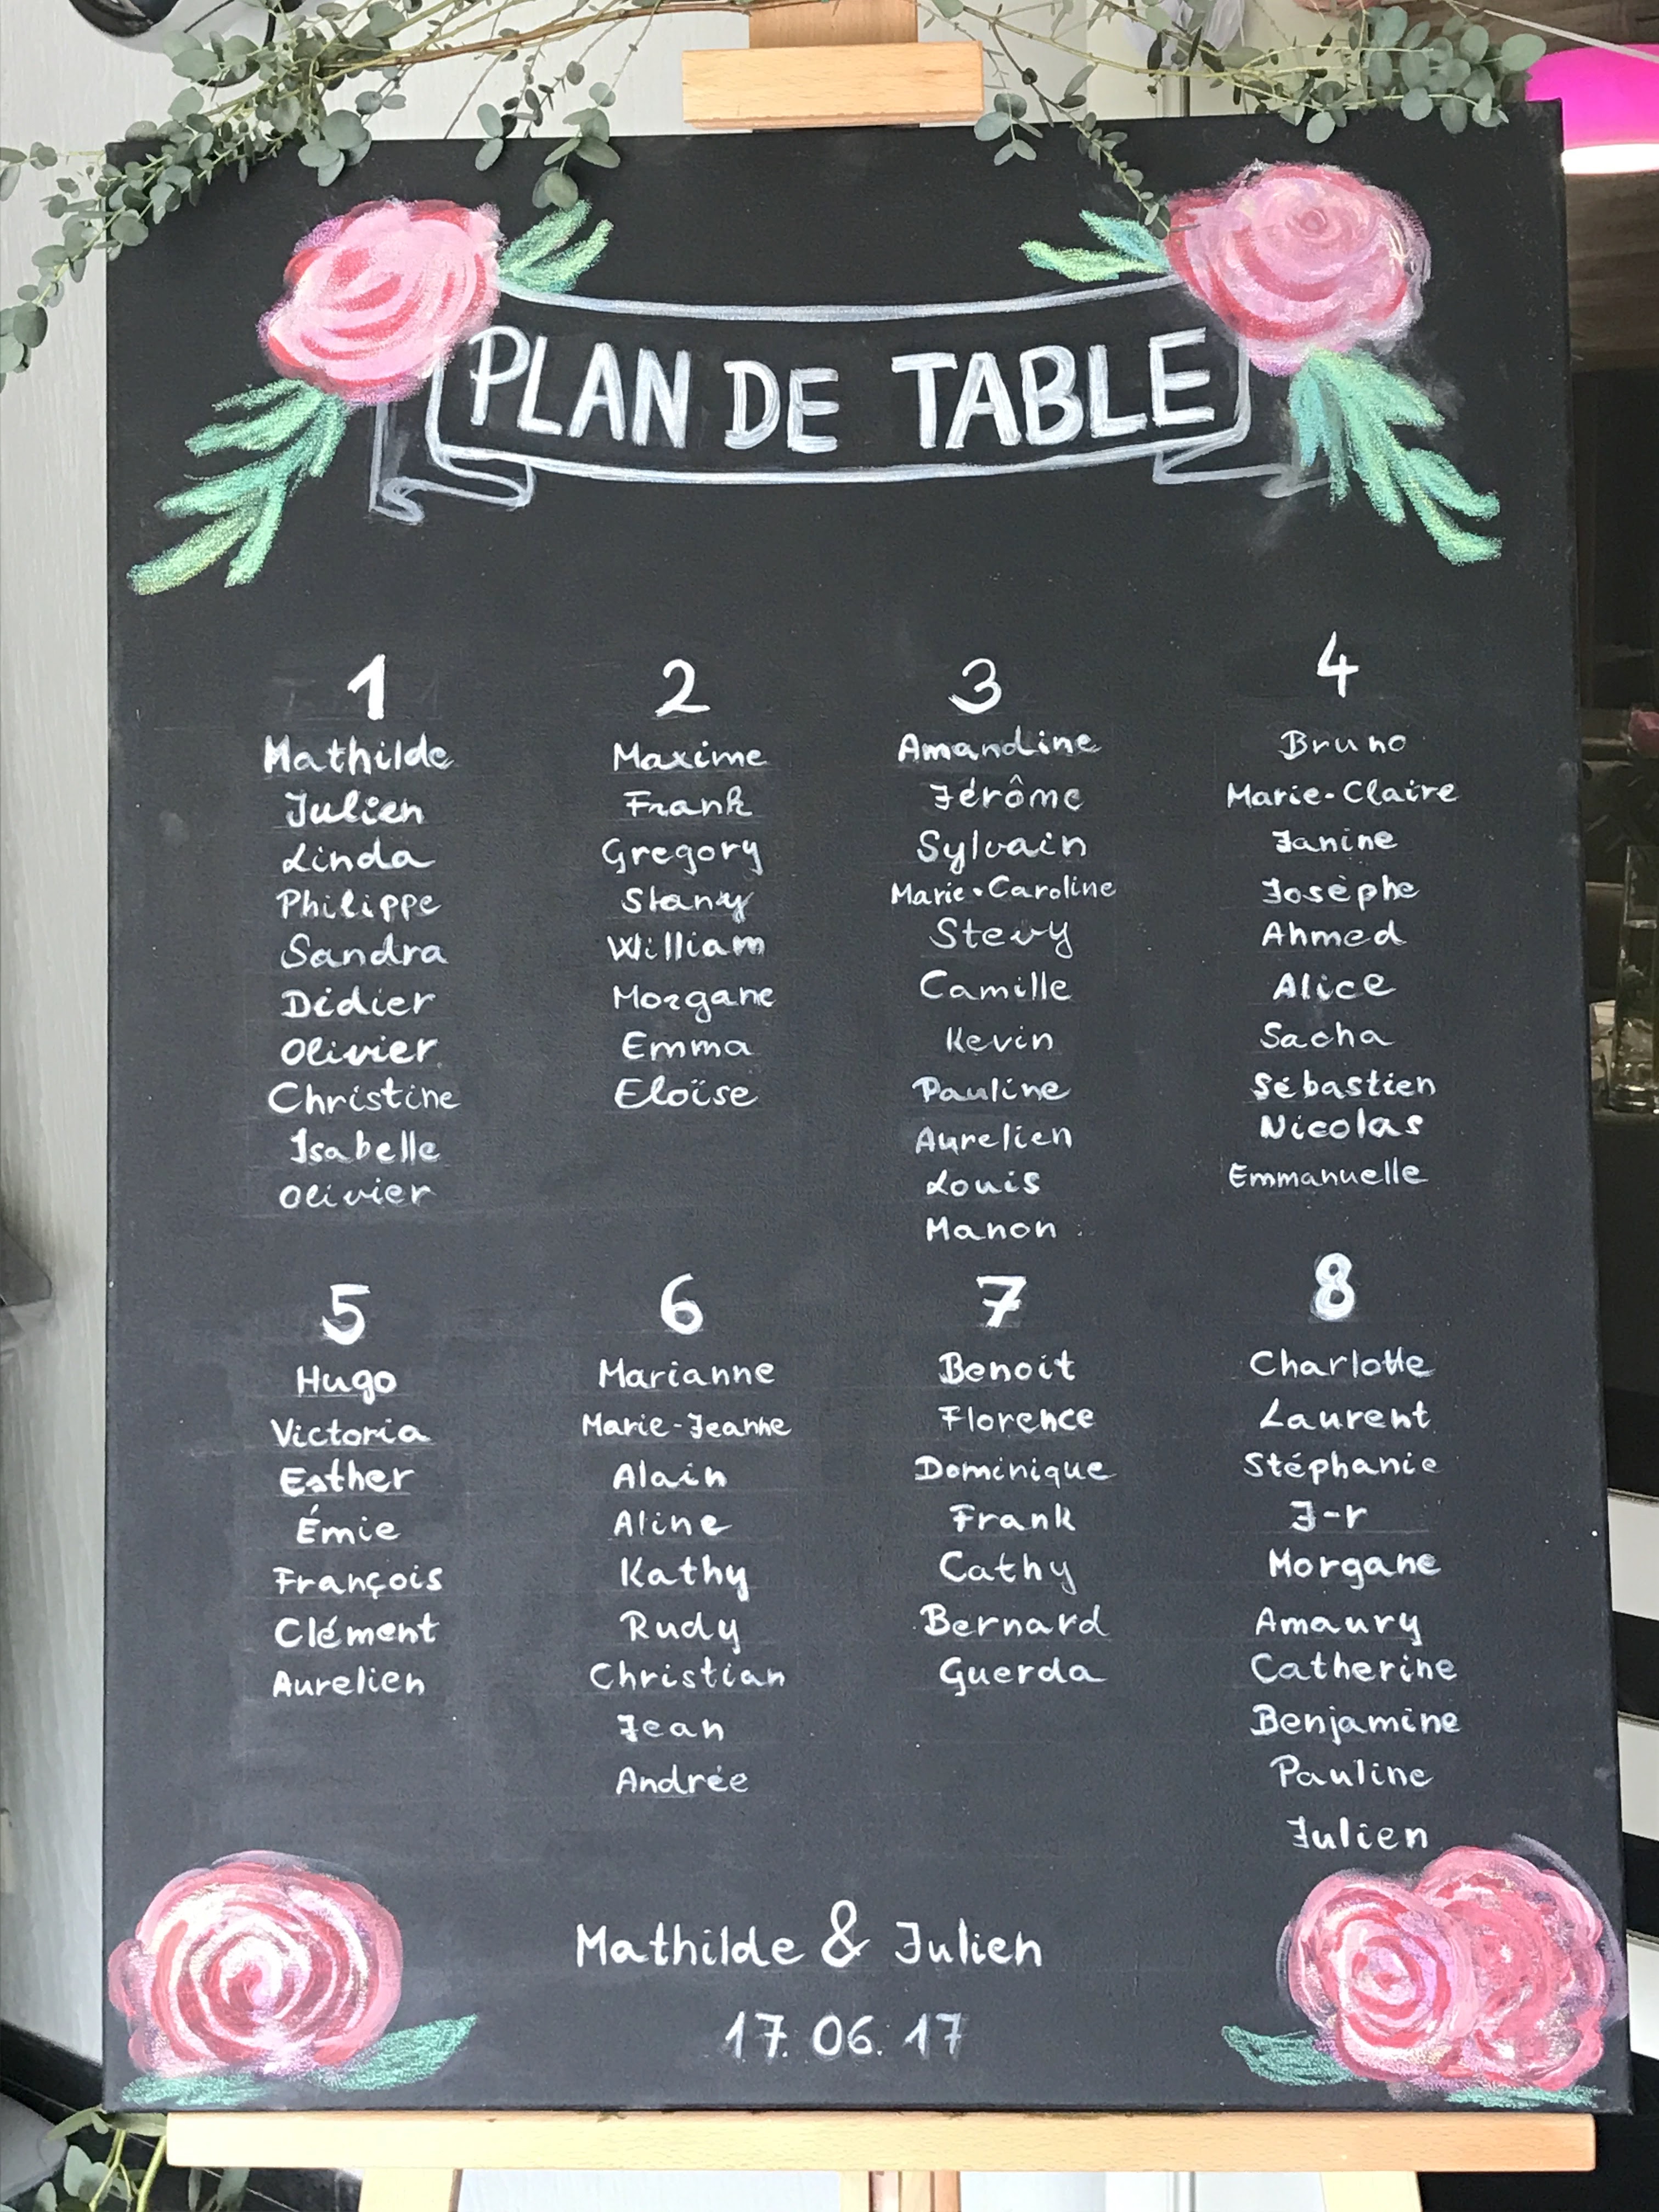 PLAN DE TABLE
1
Mathilde
Julien
Linda
Philippe
Sandra
Didier
Olivier
Christine
Isabelle
Olivier
2
Maxime
Frank
Gregory
Stany
William
Morgane
Emma
Eloïse
3
Amandine
Jérôme
Sylvain
Marie-Caroline
Stevy
Camille
Kevin
Pauline
Aurelien
Louis
Manon
4
Bruno
Marie-Claire
Janine
Josèphe
Ahmed
Alice
Sacha
Sébastien
Nicolas
Emmanuelle
5
Hugo
Victoria
Esther
Émie
François
Clément
Aurelien
6
Marianne
Marie-Jeanne
Alain
Aline
Kathy
Rudy
Christian
Jean
Andrée
7
Benoit
Florence
Dominique
Frank
Cathy
Bernard
Guerda
8
Charlotte
Laurent
Stéphanie
J-r
Morgane
Amaury
Catherine
Benjamine
Pauline
Julien
Mathilde & Julien
17.06.17